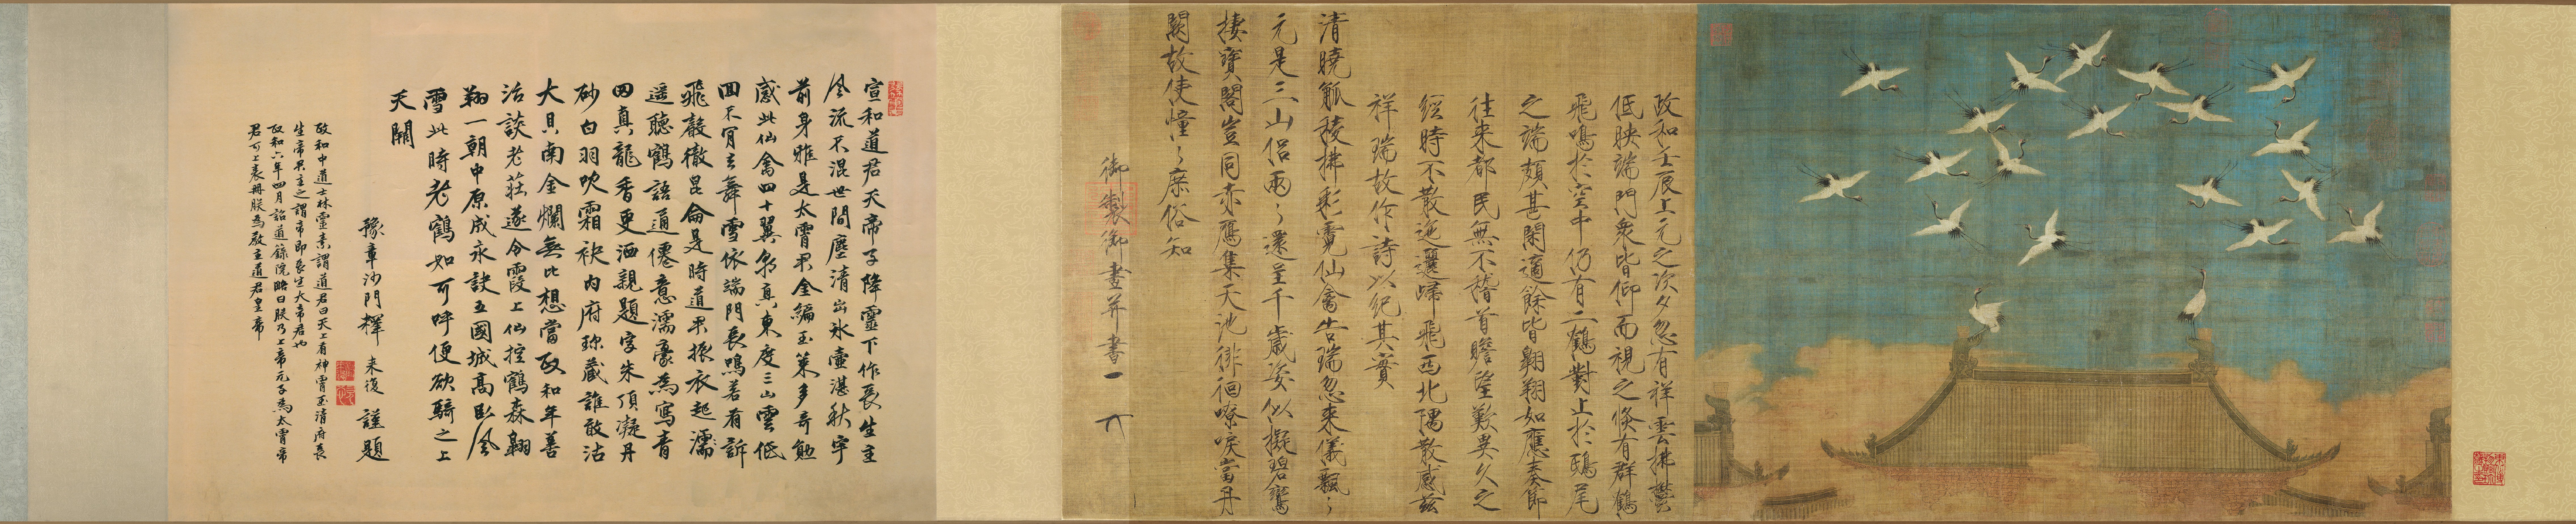 政和壬辰上元之次夕忽有祥雲拂鬱
低映端門衆皆仰而視之倐有群鶴
飛鳴於空中仍有二鶴對止於鴟尾
之端頗甚閑適餘皆翱翔如應奏節
往来都民無不稽首瞻望歎異久之
經時不散迤邐歸飛西北隅散感茲
祥瑞故作詩以紀其實
清曉觚稜拂彩霓仙禽告瑞忽來儀飄々
元是三山侶兩々還呈千歲姿似擬碧鸞
棲寶閣豈同赤鴈集天池徘徊嘹唳當丹
闕故使憧々庶俗知
御製御畫并書
宣和道君天帝子降靈下作長生主
風流不混世間塵清出氷壺湛秋宇
前身雅是太霄君金編玉策多奇勛
感此仙禽四十翼朝真東度三山雲低
回不肯去舞雪依端門長鳴若有訴
飛聲徹昆侖是時道君振衣起
遥聽鶴語通僊意濡毫為寫青
田真龍香更洒親題字朱頂凝丹
砂白羽吹霜袂内府珍藏誰敢沽
大貝南金爛無比想當政和年善
活談老莊遂令霞上仙控鶴森翱
翔一朝中原成永訣五國城髙臥風
雪此時老鶴如可呼便欲騎之上
天關
豫章沙門釋 来復 謹題
政和中道士林靈素謂道君曰天上有神霄玉清府長
生帝君主之謂帝即長生大帝君也
政和六年四月詔道錄院略曰朕乃上帝元子為太霄帝
君可上表冊朕為教主道君皇帝